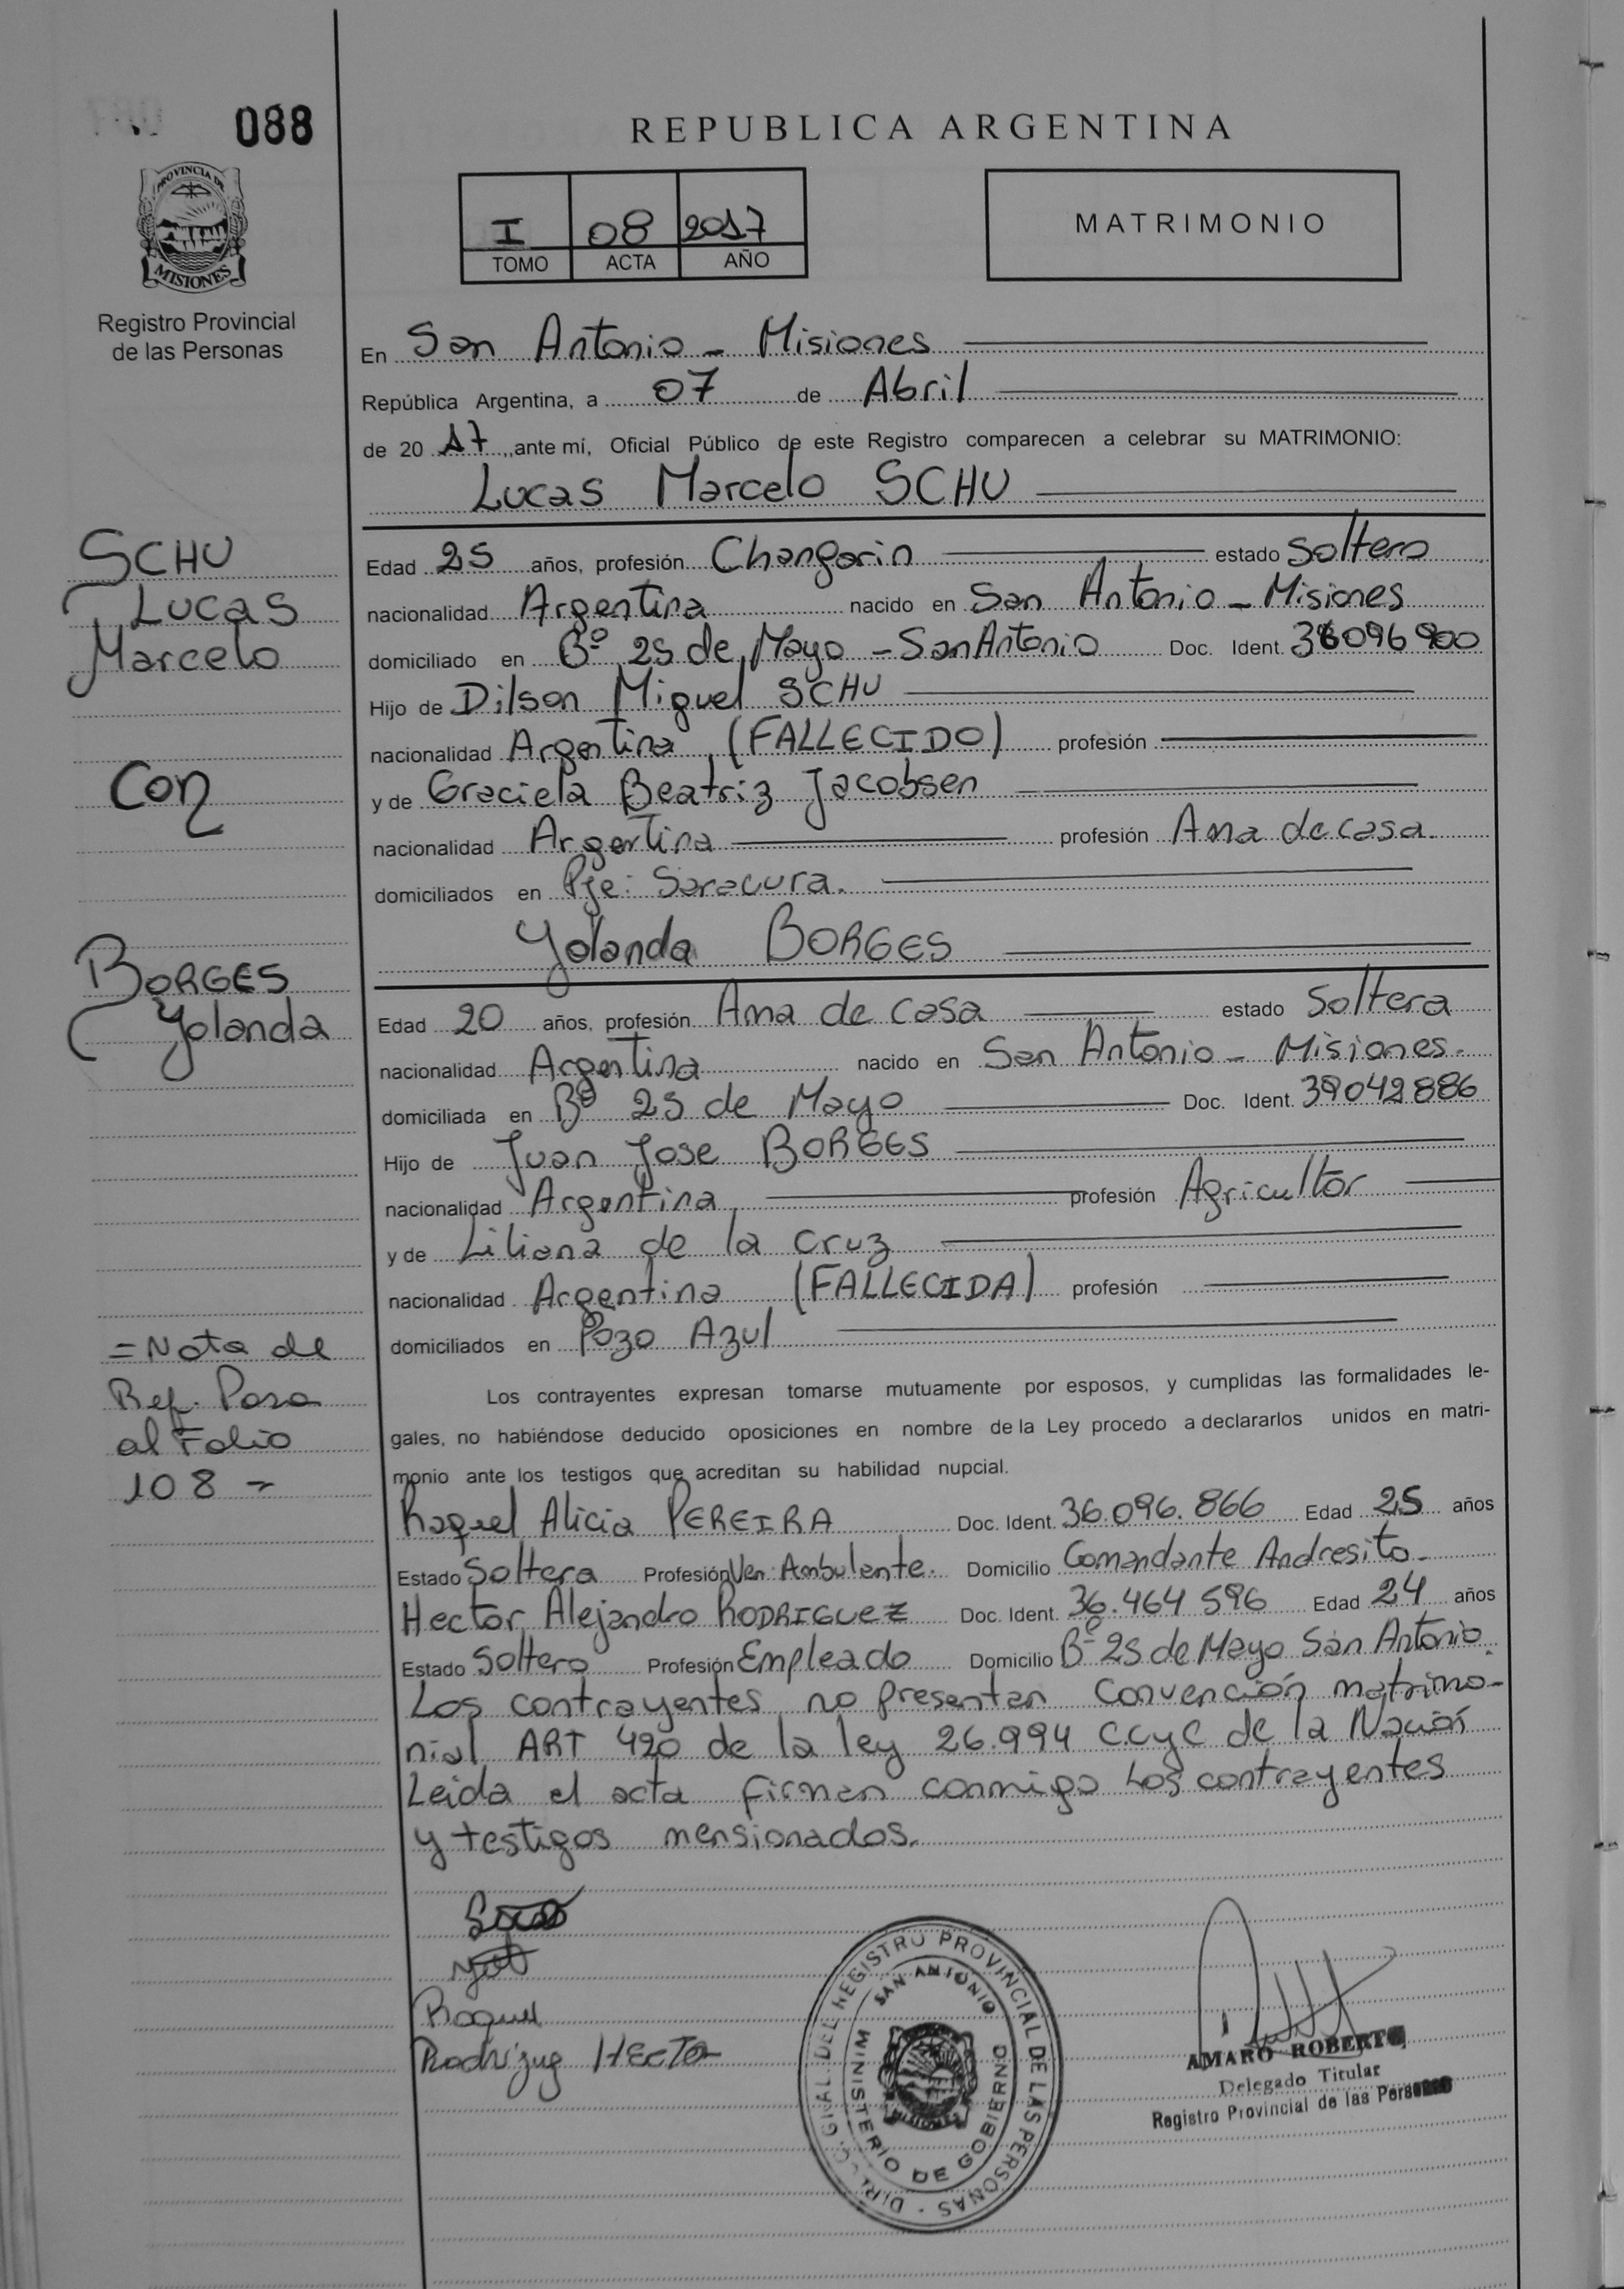 088
REPUBLICA ARGENTINA
PROVINCIA DE
MISIONES
I 08 2017
TOMO ACTA AÑO
MATRIMONIO
Registro Provincial
de las Personas
En San Antonio - Misiones
República Argentina, a 07 de Abril
de 20 17, ante mí, Oficial Público de este Registro comparecen a celebrar su MATRIMONIO:
Lucas Marcelo SCHU
SCHU
Lucas
Marcelo
Con
BORGES
Yolanda
Edad 25 años, profesión Changarin estado Soltero
nacionalidad Argentina nacido en San Antonio - Misiones
domiciliado en Bº 25 de Mayo - San Antonio Doc. Ident. 36096900
Hijo de Dilson Miguel SCHU
nacionalidad Argentina (FALLECIDO) profesión
y de Graciela Beatriz Jacobsen
nacionalidad Argentina profesión Ama de casa.
domiciliados en Pje: Saracura.
Yolanda BORGES
Edad 20 años, profesión Ama de casa estado Soltera
nacionalidad Argentina nacido en San Antonio - Misiones.
domiciliada en Bº 25 de Mayo Doc. Ident. 39042886
Hijo de Juan Jose BORGES
nacionalidad Argentina profesión Agricultor
y de Liliana de la Cruz
nacionalidad Argentina (FALLECIDA) profesión
domiciliados en Pozo Azul
=Nota de
Ref. Pasa
al Folio
108 =
Los contrayentes expresan tomarse mutuamente por esposos, y cumplidas las formalidades le-
gales, no habiéndose deducido oposiciones en nombre de la Ley procedo a declararlos unidos en matri-
monio ante los testigos que acreditan su habilidad nupcial.
Raquel Alicia PEREIRA Doc. Ident. 36.096.866 Edad 25 años
Estado Soltera Profesión Ven. Ambulante. Domicilio Comandante Andresito-
Hector Alejandro RODRIGUEZ Doc. Ident. 36.464 596 Edad 24 años
Estado Soltero Profesión Empleado Domicilio Bº 25 de Mayo San Antonio.
Los contrayentes no presentan Convención matrimo-
nial ART 420 de la ley 26.994 CCyC de la Nación
Leida el acta firman conmigo los contrayentes
y testigos mensionados.
Raquel
Rodrizug Hecto
REGISTRO PROVINCIAL DE LAS PERSONAS
SAN ANTONIO
MINISTERIO DE GOBIERNO
MISIONES
AMARO ROBERTO
Delegado Titular
Registro Provincial de las Personas